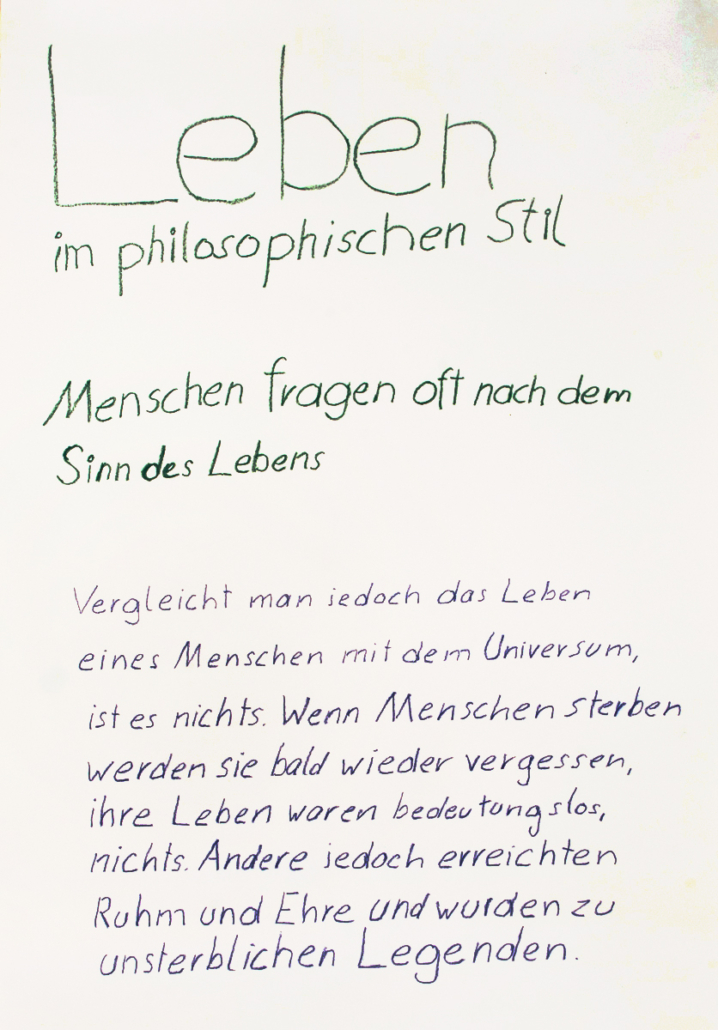 Leben
im philosophischen Stil
Menschen fragen oft nach dem
Sinn des Lebens
Vergleicht man jedoch das Leben
eines Menschen mit dem Universum,
ist es nichts. Wenn Menschen sterben
werden sie bald wieder vergessen,
ihre Leben waren bedeutungslos,
nichts. Andere jedoch erreichten
Ruhm und Ehre und wurden zu
unsterblichen Legenden.